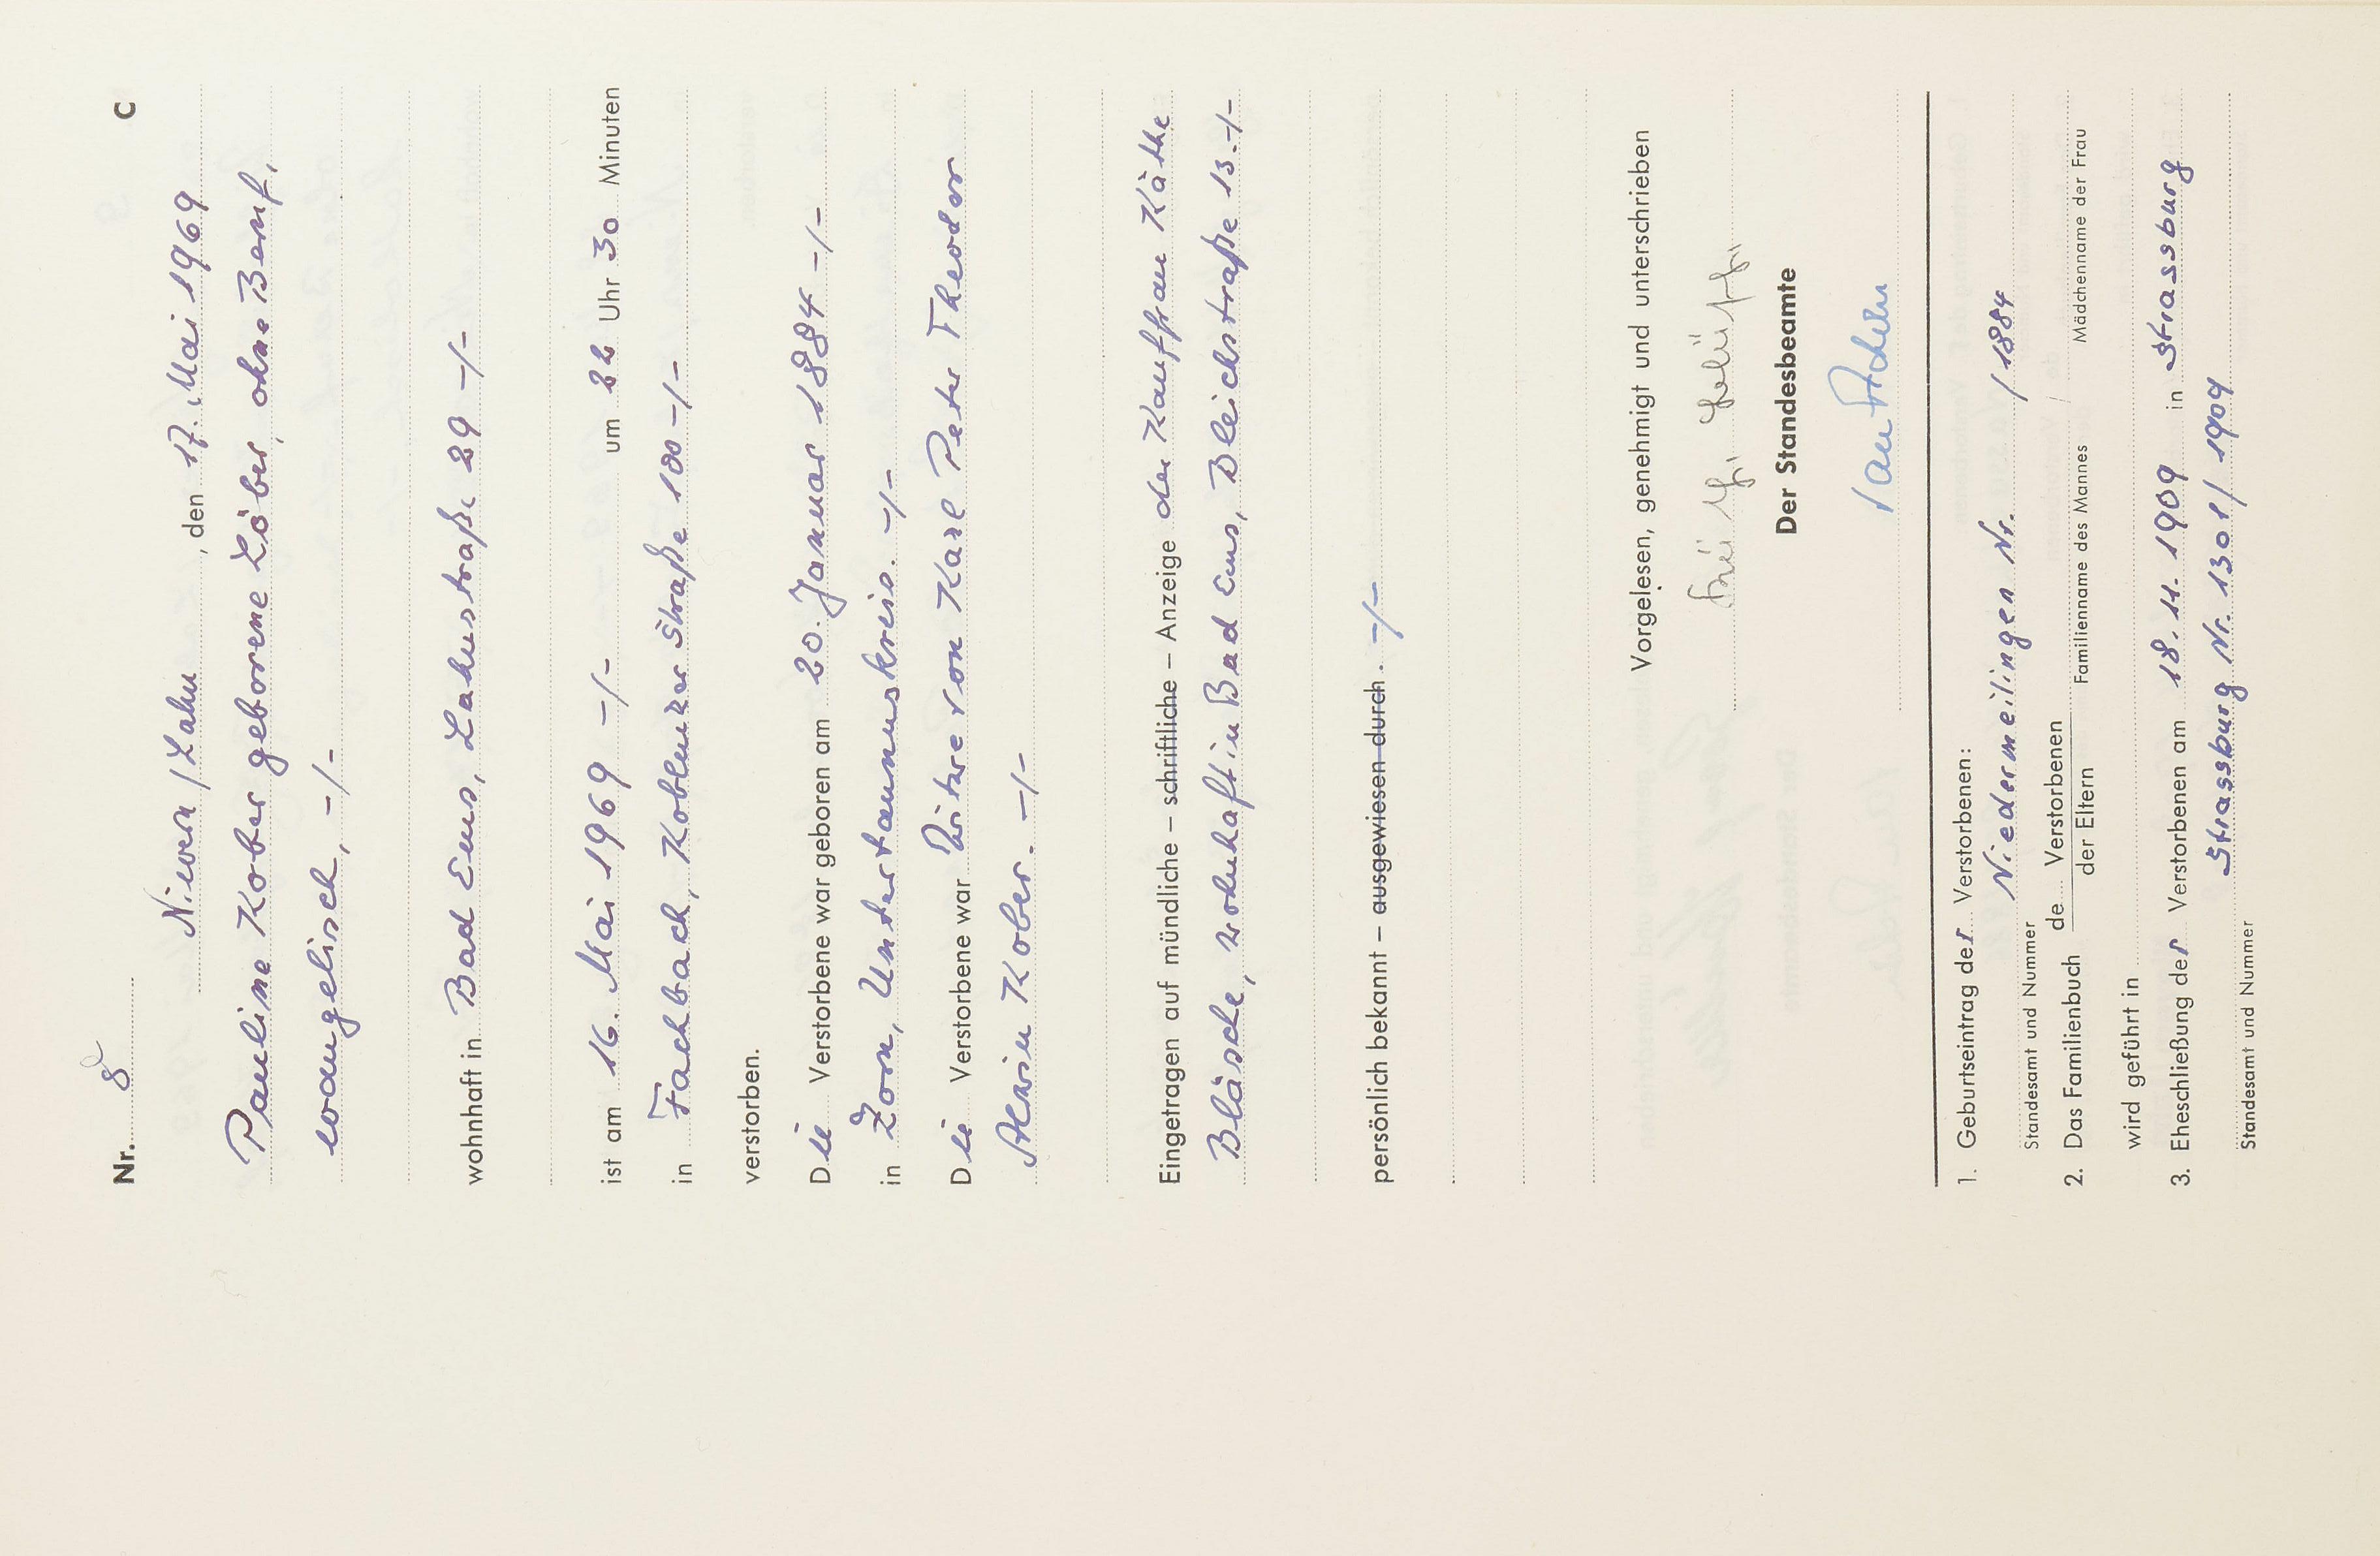 Nr. 8 C
Nievern/Lahn, den 17. Mai 1969
Pauline Kober geborene Löber, ohne Beruf,
evangelisch, -/-
wohnhaft in Bad Ems, Lahnstraße 29 -/-
ist am 16. Mai 1969 -/- um 22 Uhr 30 Minuten
in Fachbach, Koblenzer Straße 100 -/-
verstorben.
Die Verstorbene war geboren am 20. Januar 1884 -/-
in Zorn, Untertaunuskreis. -/-
Die Verstorbene war Witwe von Karl Peter Theodor
Alwin Kober. -/-
Eingetragen auf mündliche – schriftliche – Anzeige der Kauffrau Käthe
Bläsche, wohnhaft in Bad Ems, Bleichstraße 13. -/-
persönlich bekannt – ausgewiesen durch. -/-
Vorgelesen, genehmigt und unterschrieben
Der Standesbeamte
1. Geburtseintrag der Verstorbenen:
Standesamt und Nummer Niedermeilingen Nr. /1884
2. Das Familienbuch de Verstorbenen
der Eltern Familienname des Mannes / Mädchenname der Frau
wird geführt in
3. Eheschließung der Verstorbenen am 18.11.1909 in Strassburg
Standesamt und Nummer Strassburg Nr. 1301/1909